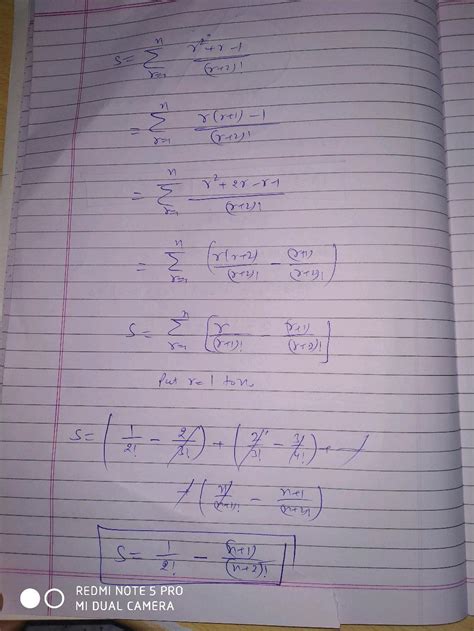 S = \sum_{r=1}^{n} \frac{r^2+r-1}{(r+2)!}
= \sum_{r=1}^{n} \frac{r(r+1)-1}{(r+2)!}
= \sum_{r=1}^{n} \frac{r^2+2r-r-1}{(r+2)!}
= \sum_{r=1}^{n} \left( \frac{r(r+2)}{(r+2)!} - \frac{(r+1)}{(r+2)!} \right)
S = \sum_{r=1}^{n} \left[ \frac{r}{(r+1)!} - \frac{(r+1)}{(r+2)!} \right]
Put r=1 to n
S = \left( \frac{1}{2!} - \frac{2}{3!} \right) + \left( \frac{2}{3!} - \frac{3}{4!} \right) + —
+ \left( \frac{n}{(n+1)!} - \frac{n+1}{(n+2)!} \right)
S = \frac{1}{2!} - \frac{(n+1)}{(n+2)!}
REDMI NOTE 5 PRO
MI DUAL CAMERA